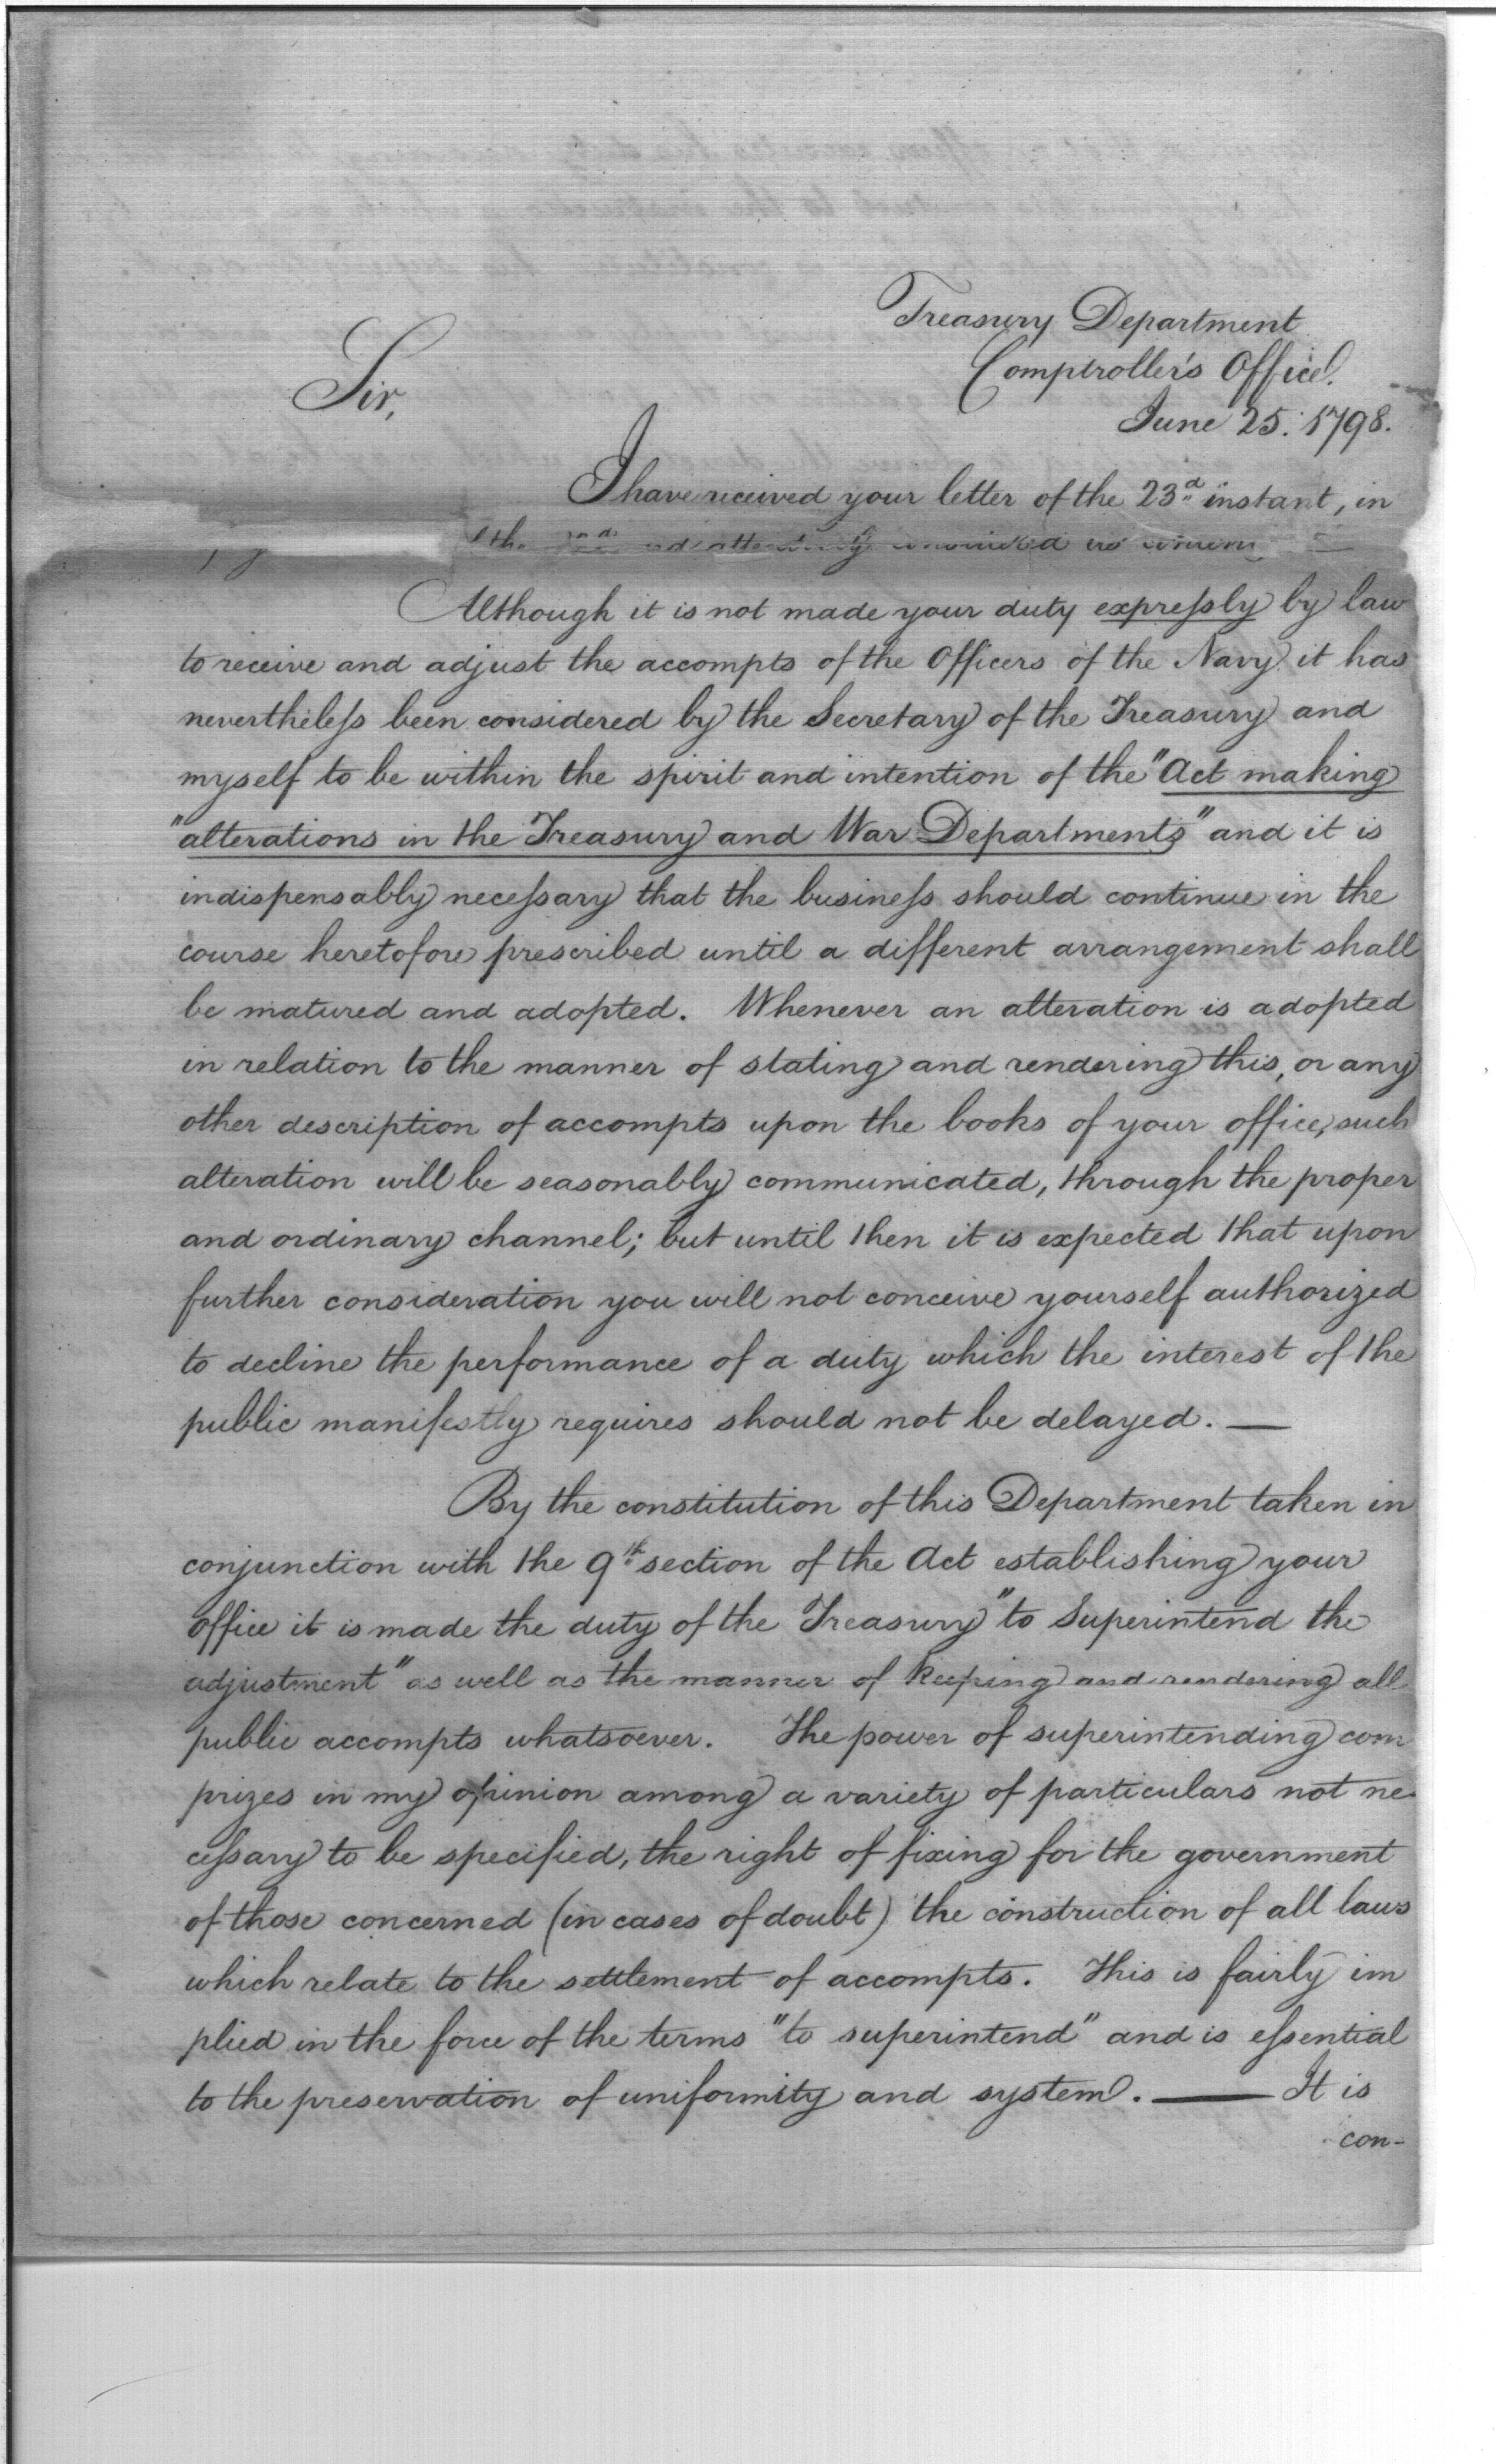 Treasury Department
Comptroller's Office.
June 25. 1798.
Sir,
I have received your letter of the 23d instant, in
the
Although it is not made your duty expreſsly by law
to receive and adjust the accompts of the Officers of the Navy it has
nevertheleſs been considered by the Secretary of the Treasury and
myself to be within the spirit and intention of the "Act making
"alterations in the Treasury and War Departments" and it is
indispensably neceſsary that the busineſs should continue in the
course heretofore prescribed until a different arrangement shall
be matured and adopted. Whenever an alteration is adopted
in relation to the manner of stating and rendering this, or any
other description of accompts upon the books of your office, such
alteration will be seasonably communicated, through the proper
and ordinary channel; but until then it is expected that upon
further consideration you will not conceive yourself authorized
to decline the performance of a duty which the interest of the
public manifestly requires should not be delayed. —
By the constitution of this Department taken in
conjunction with the 9th section of the Act establishing your
office it is made the duty of the Treasury "to Superintend the
adjustment" as well as the manner of keeping and rendering all
public accompts whatsoever. The power of superintending com
prizes in my opinion among a variety of particulars not ne
ceſsary to be specified, the right of fixing for the government
of those concerned (in cases of doubt) the construction of all laws
which relate to the settlement of accompts. This is fairly im
plied in the force of the terms "to superintend" and is eſsential
to the preservation of uniformity and system. — It is
con-